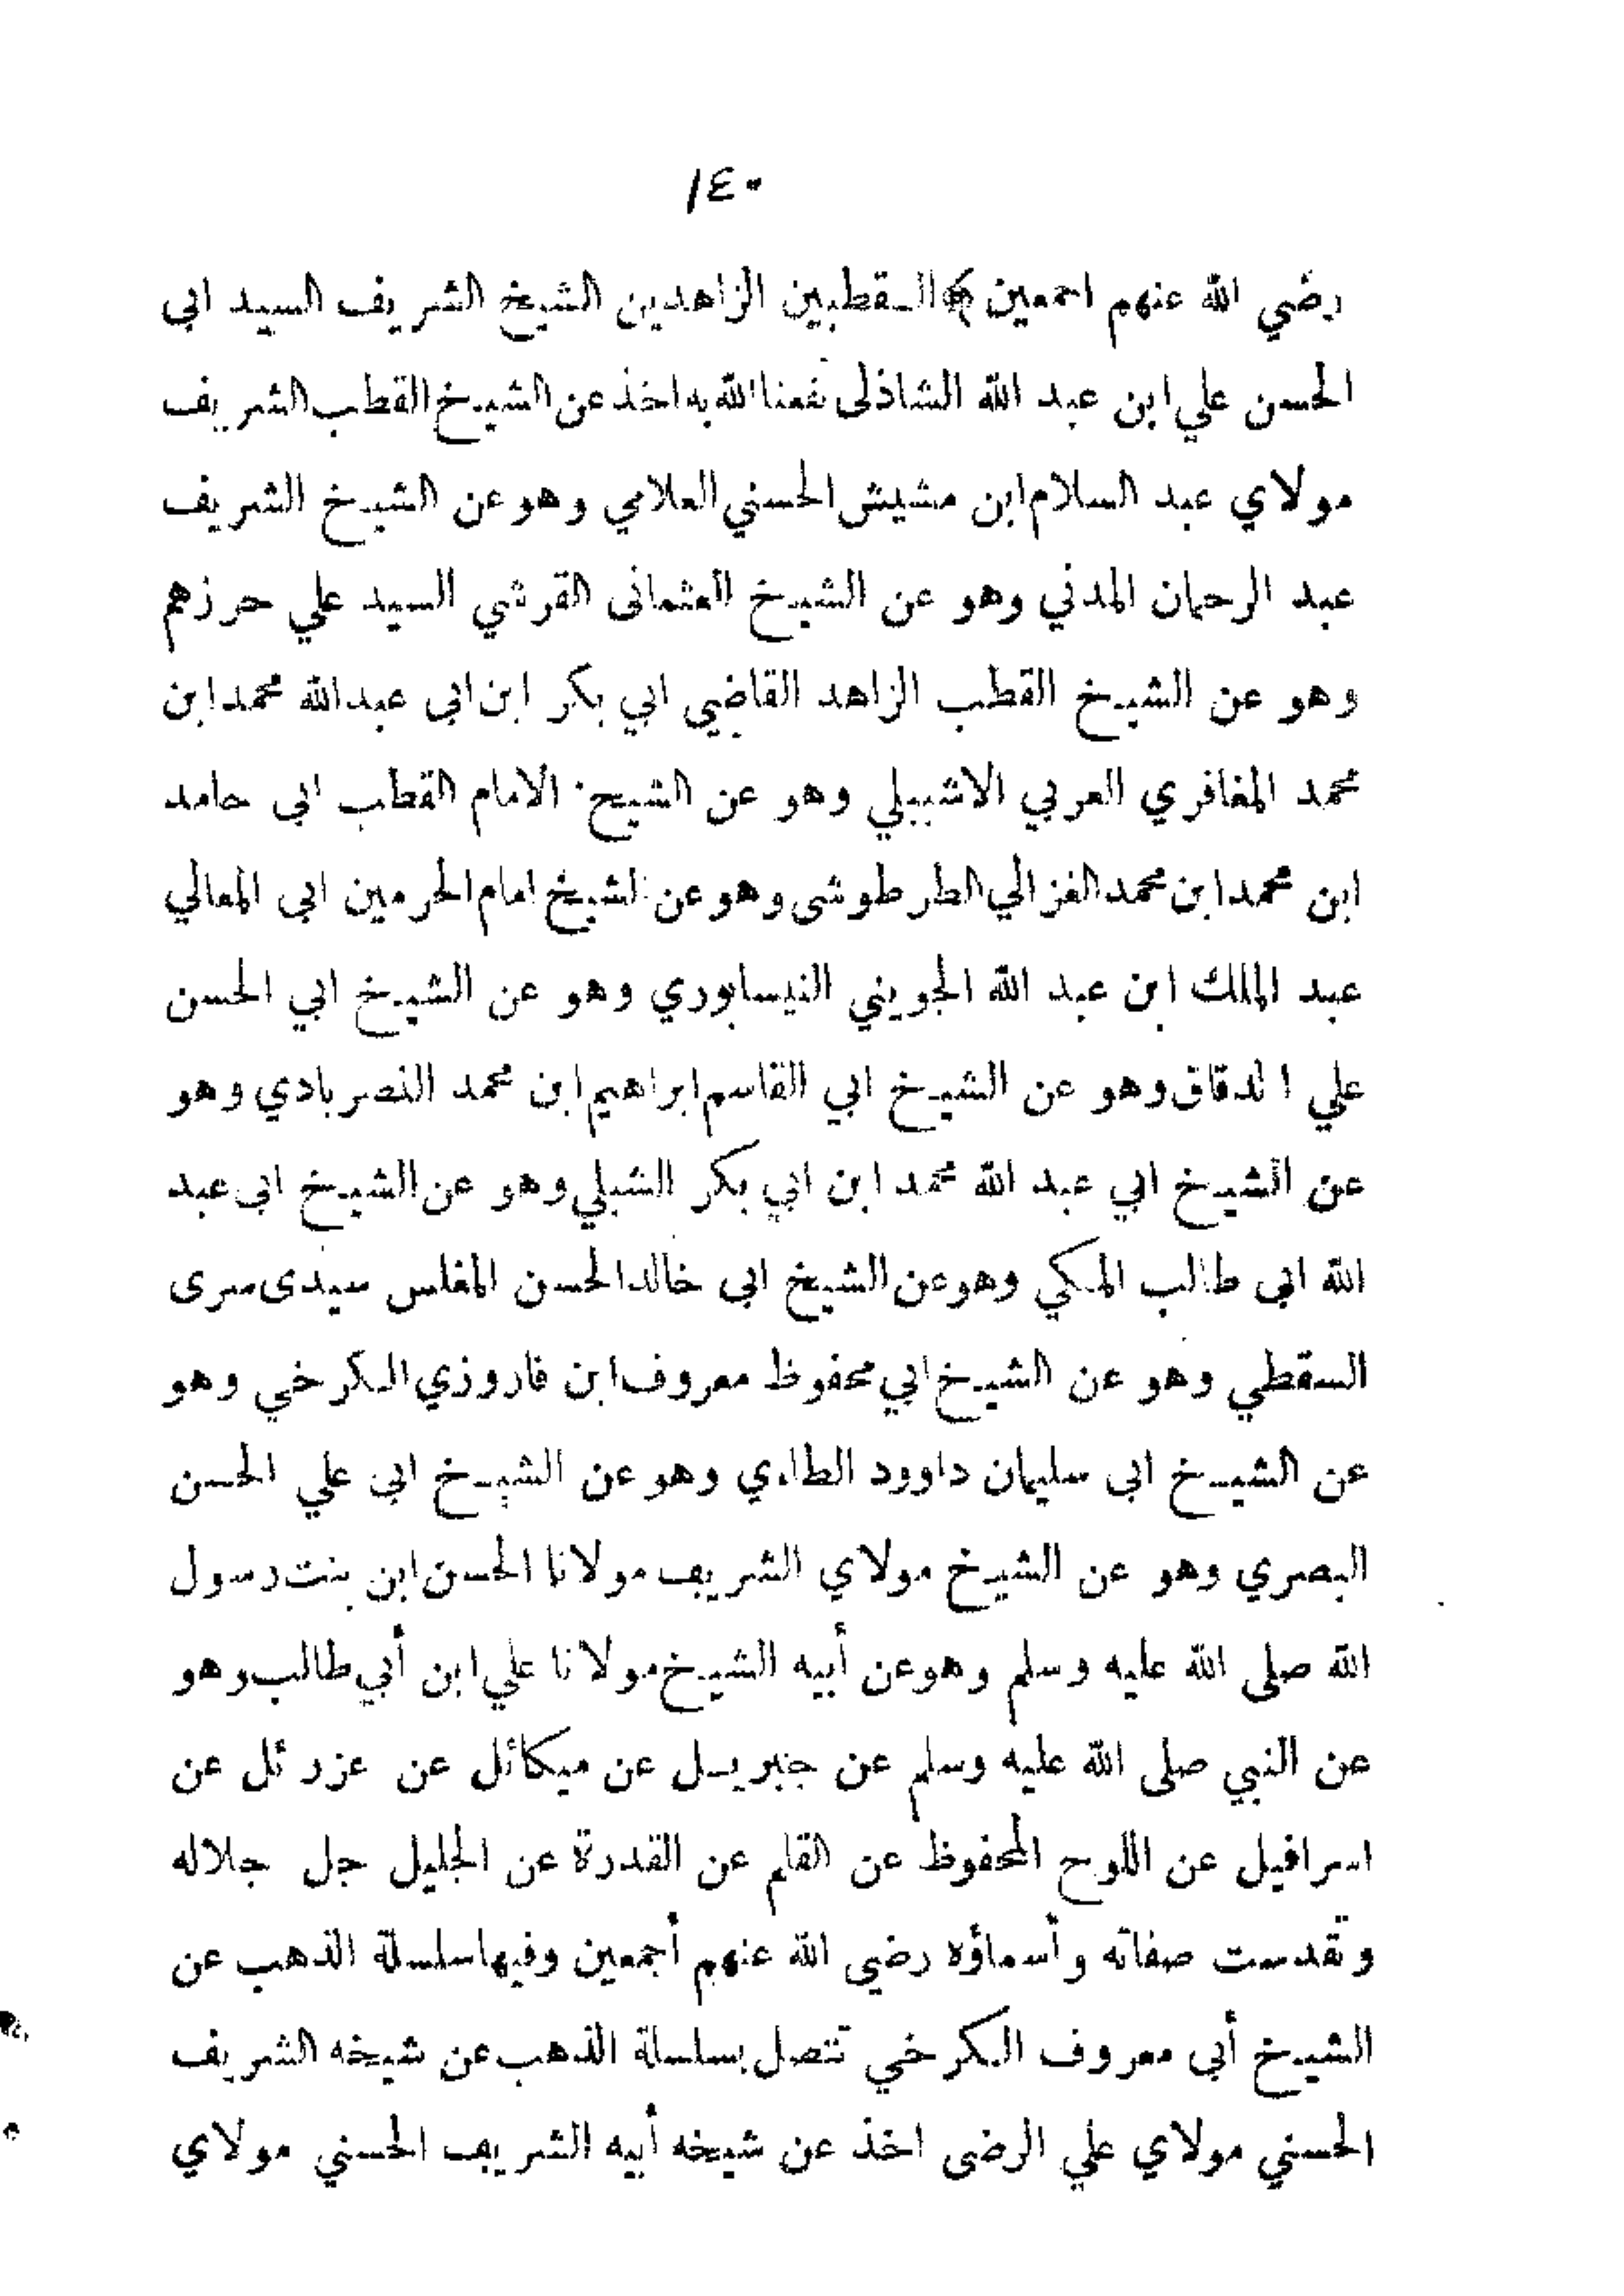 ١٤٠
رضي الله عنهم اجمعين ﴾ القطبين الزاهدين الشيخ الشريف السيد ابي
الحسن علي ابن عبد الله الشاذلى نفعنا الله به اخذ عن الشيخ القطب الشريف
مولاي عبد السلام ابن مشيش الحسني العلامي وهو عن الشيخ الشريف
عبد الرحمان المدني وهو عن الشيخ العثمانى القرشي السيد علي حرزهم
وهو عن الشيخ القطب الزاهد القاضي ابي بكر ابن ابي عبد الله محمد ابن
محمد المغافري العربي الاشبيلي وهو عن الشيخ الامام القطب ابى حامد
ابن محمد ابن محمد الغزالي الطرطوشى وهو عن الشيخ امام الحرمين ابى المعالي
عبد الملك ابن عبد الله الجويني النيسابوري وهو عن الشيخ ابي الحسن
علي الدقاق وهو عن الشيخ ابي القاسم ابراهيم ابن محمد النصربادي وهو
عن الشيخ ابي عبد الله محمد ابن ابي بكر الشبلي وهو عن الشيخ ابى عبد
الله ابى طالب المكي وهو عن الشيخ ابى خالد الحسن المغلس سيدى سرى
السقطي وهو عن الشيخ ابي محفوظ معروف ابن فاروزي الكرخي وهو
عن الشيخ ابى سليمان داوود الطاءي وهو عن الشيخ ابى علي الحسن
البصري وهو عن الشيخ مولاي الشريف مولانا الحسن ابن بنت رسول
الله صلى الله عليه وسلم وهو عن أبيه الشيخ مولانا علي ابن أبي طالب وهو
عن النبي صلى الله عليه وسلم عن جبريل عن ميكائل عن عزرئل عن
اسرافيل عن اللوح المحفوظ عن القلم عن القدرة عن الجليل جل جلاله
وتقدست صفاته وأسماؤه رضي الله عنهم أجمعين وفيها سلسلة الذهب عن
الشيخ أبى معروف الكرخي تتصل بسلسلة الذهب عن شيخه الشريف
الحسني مولاي علي الرضى اخذ عن شيخه أبيه الشريف الحسني مولاي